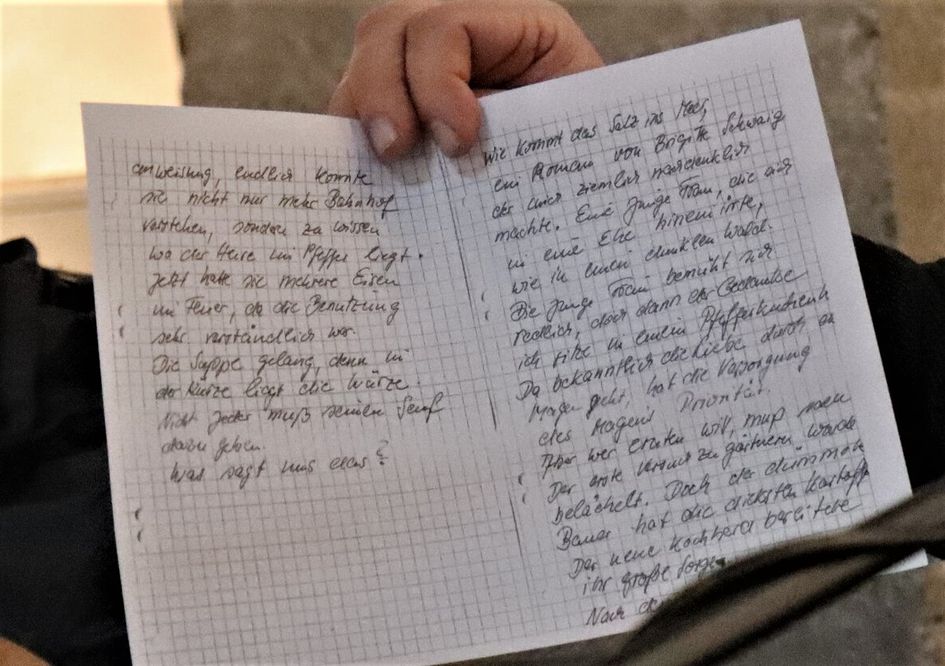 anweisung, endlich konnte
sie nicht nur mehr Bahnhof
verstehen, sondern zu wissen
wo der Hase im Pfeffer liegt.
Jetzt hatte sie mehrere Eisen
im Feuer, da die Benutzung
sehr verständlich war.
Die Suppe gelang, denn in
der Kürze liegt die Würze.
Nicht jeder muß seinen Senf
dazu geben.
Was sagt uns das?
Wie kommt das Salz ins Meer,
ein Roman von Brigitte Schwaig
der mich ziemlich nachdenklich
machte. Eine junge Frau, die sich
in eine Ehe hineinirrte,
wie in einen dunklen Wald.
Die junge Frau bemüht sich
redlich, doch dann der Gedanke
ich sitze in einem Pfefferkuchenh
Da bekanntlich die Liebe durch den
Magen geht, hat die Versorgung
des Magens Priorität.
Aber wer ernten will, muß säen
Der erste Versuch zu gärtnern wurde
belächelt. Doch der dümmste
Bauer hat die dicksten Kartoff
Der neue Kochherd bereitete
ihr große Sorge
Nach